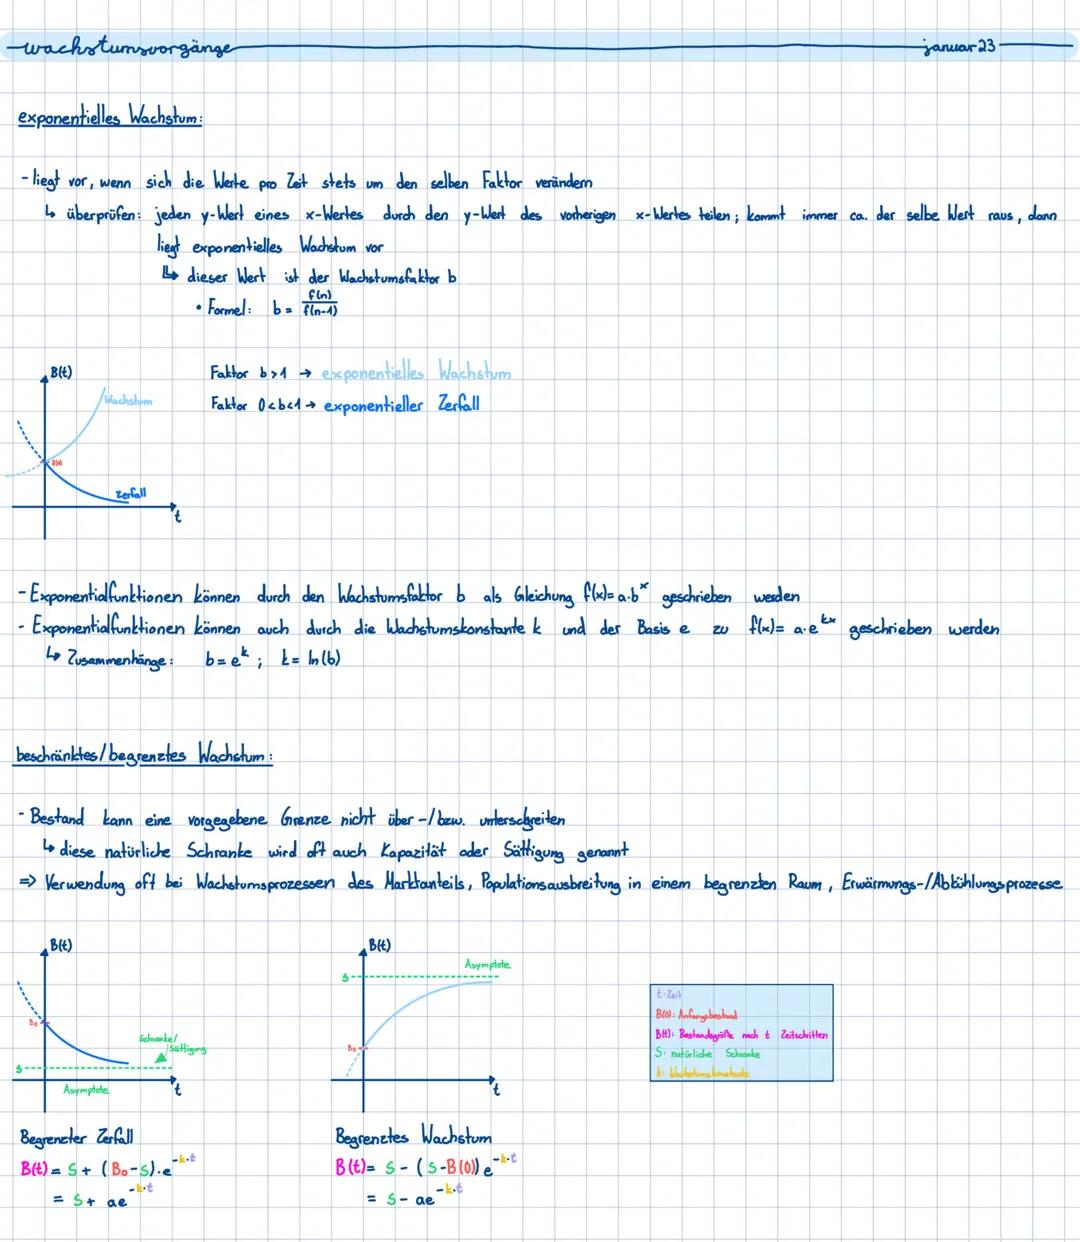 wachstumsvorgänge januar 23
exponentielles Wachstum:
- liegt vor, wenn sich die Werte pro Zeit stets um den selben Faktor verändern
↳ überprüfen: jeden y-Wert eines x-Wertes durch den y-Wert des vorherigen x-Wertes teilen; kommt immer ca. der selbe Wert raus, dann
liegt exponentielles Wachstum vor
↳ dieser Wert ist der Wachstumsfaktor b
• Formel: b = f(n)/f(n-1)
B(t)
Wachstum
Zerfall
t
Faktor b>1 → exponentielles Wachstum
Faktor 0<b<1 → exponentieller Zerfall
- Exponentialfunktionen können durch den Wachstumsfaktor b als Gleichung f(x)= a·b^x geschrieben werden
- Exponentialfunktionen können auch durch die Wachstumskonstante k und der Basis e zu f(x)= a·e^kx geschrieben werden
↳ Zusammenhänge: b = e^k ; k = ln(b)
beschränktes/begrenztes Wachstum:
- Bestand kann eine vorgegebene Grenze nicht über-/bzw. unterschreiten
↳ diese natürliche Schranke wird oft auch Kapazität oder Sättigung genannt
=> Verwendung oft bei Wachstumsprozessen des Marktanteils, Populationsausbreitung in einem begrenzten Raum, Erwärmungs-/Abkühlungsprozesse
B(t)
B₀
Schranke/
Sättigung
S
Asymptote
t
Begrenzter Zerfall
B(t) = S + (B₀-S)·e^-k·t
= S + ae^-k·t
B(t)
Asymptote
S
B₀
t
Begrenztes Wachstum
B(t)= S - (S-B(0)) e^-k·t
= S - ae^-k·t
t: Zeit
B(0): Anfangsbestand
B(t): Bestandsgröße nach t Zeitschritten
S: natürliche Schranke
k: Wachstumskonstante